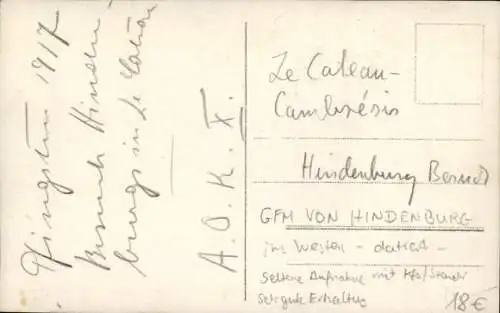 Pfingsten 1917
Besuch Hinden-
burgs in Le Cateau
A.O.K. X.
Le Cateau-
Cambrésis
Hindenburg Besuch
GFM VON HINDENBURG
im Westen - datiert -
Seltene Aufnahme mit Kfz/Stander
Sehr gute Erhaltung
18€